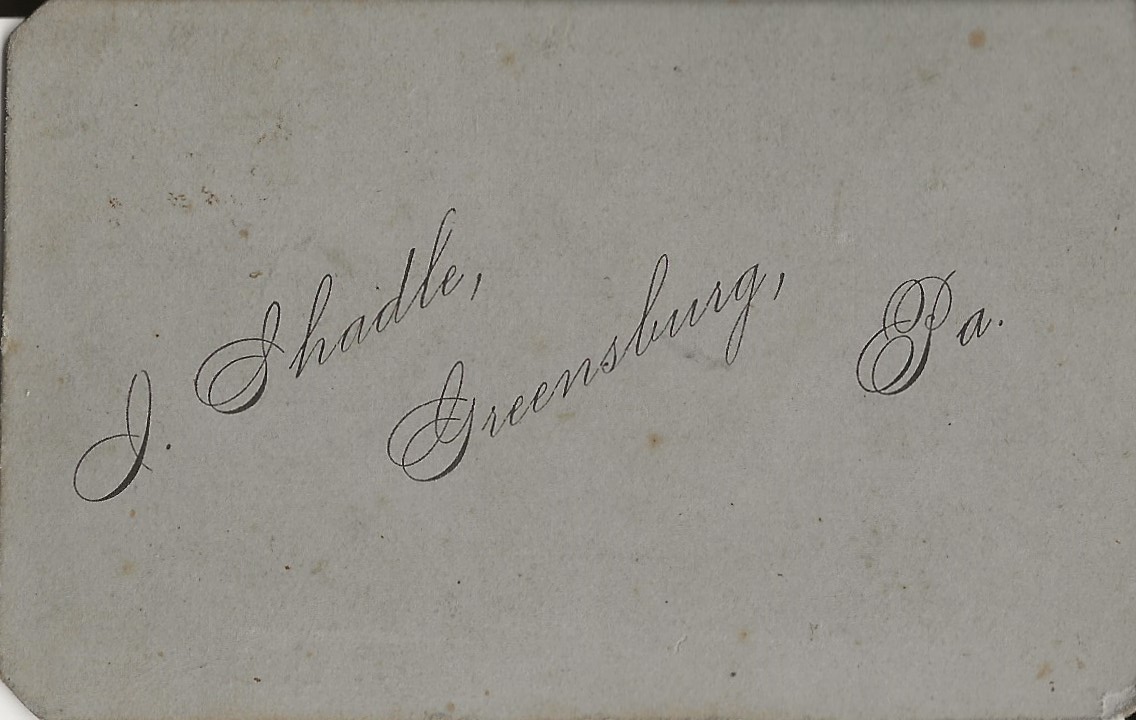 J. Shadle,
Greensburg, Pa.